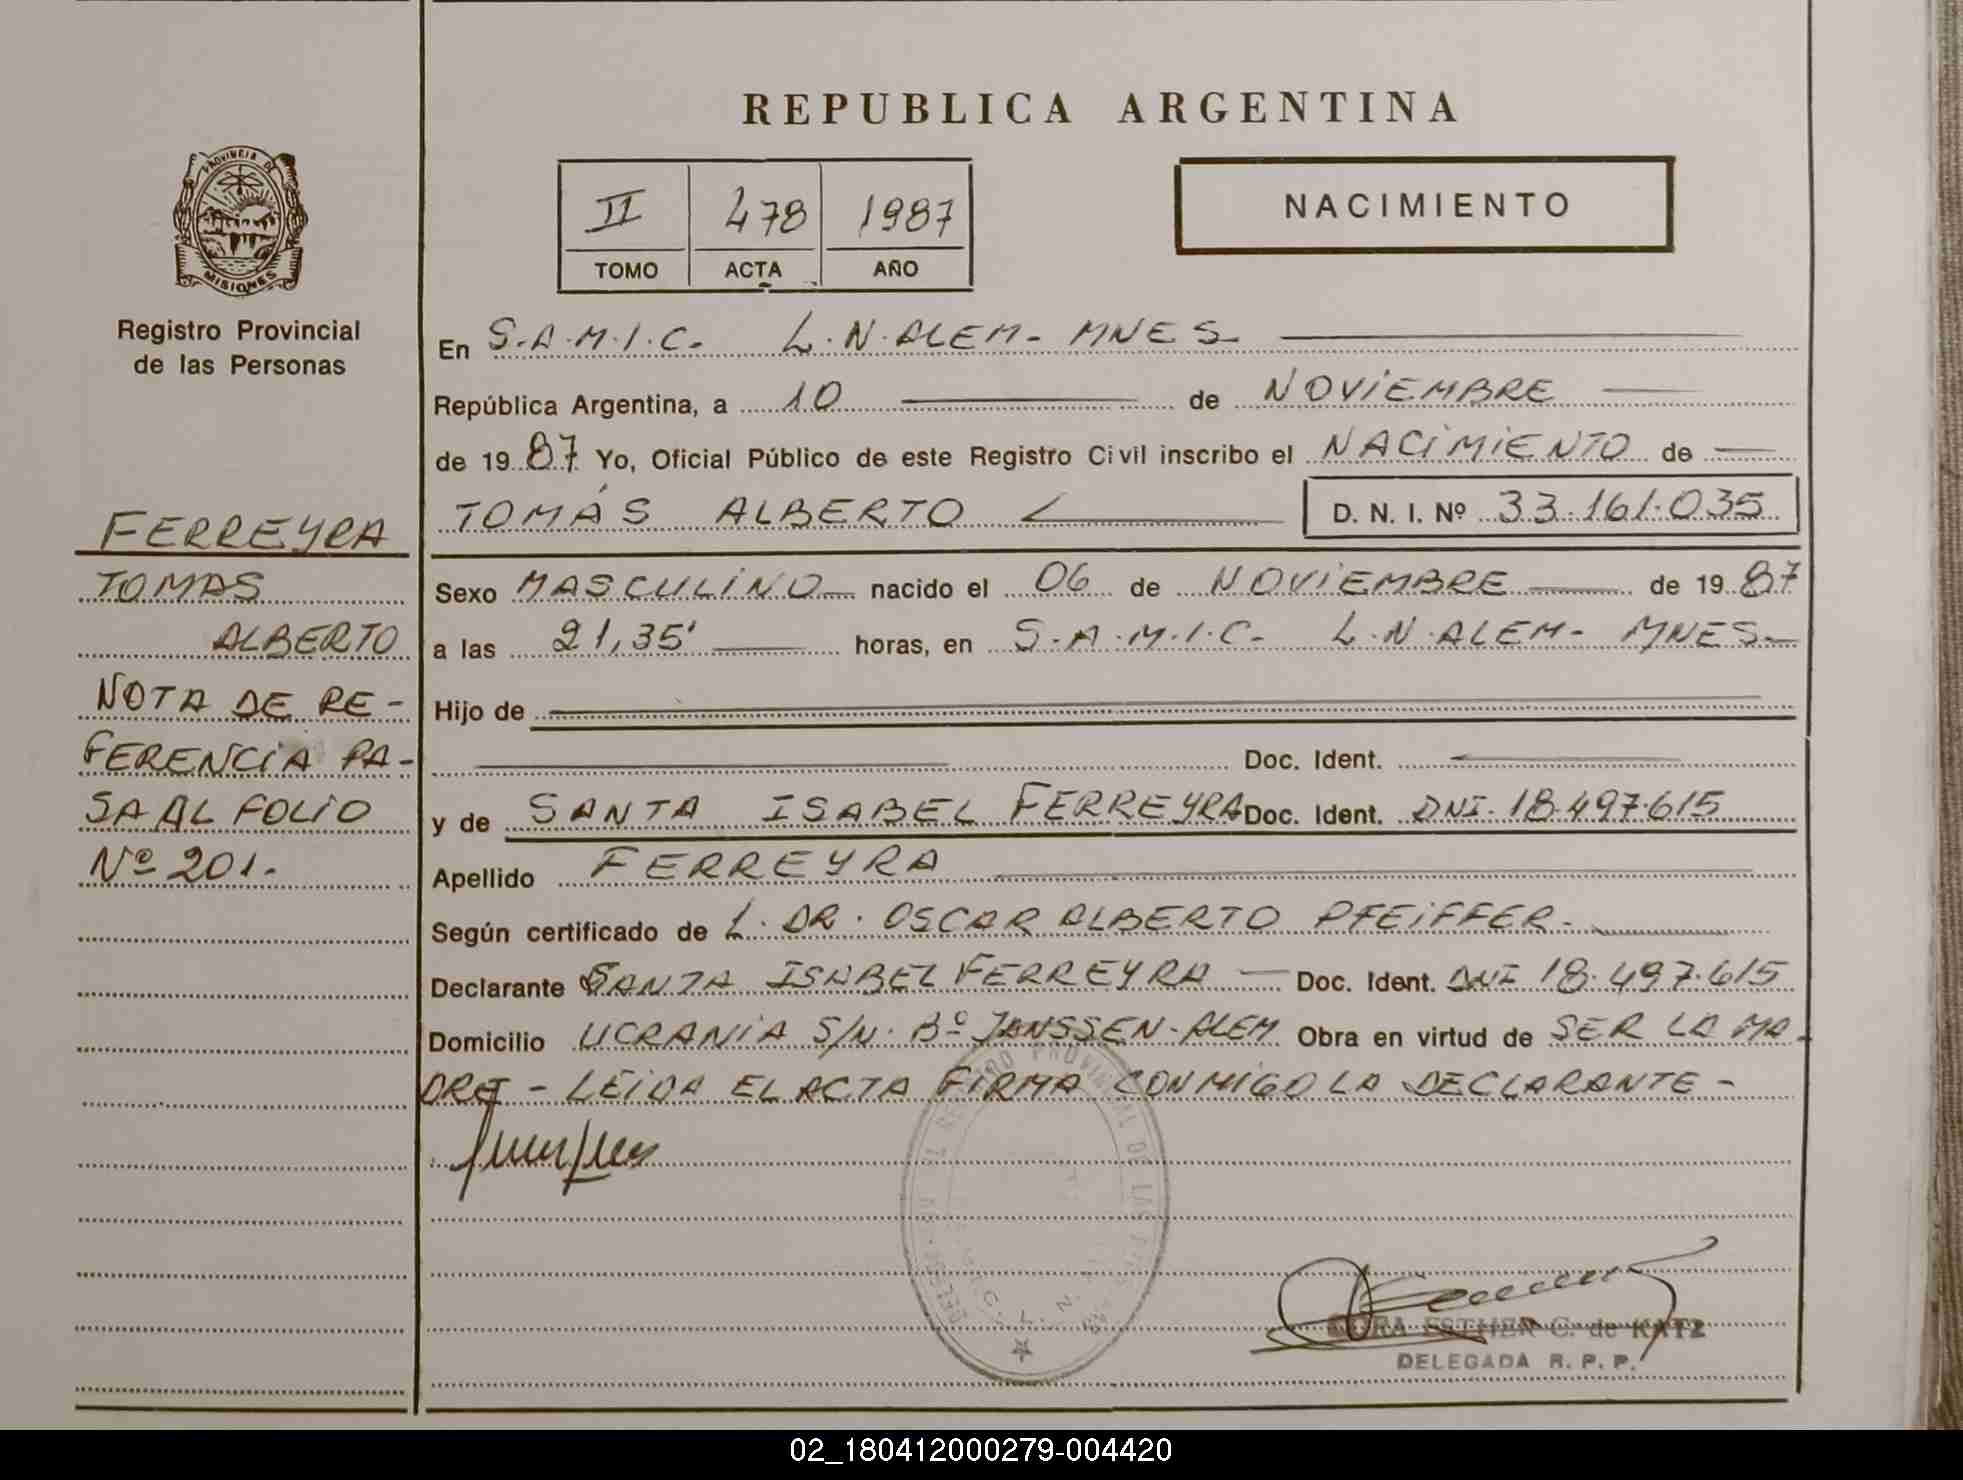 REPUBLICA ARGENTINA
PROVINCIA DE
MISIONES
Registro Provincial
de las Personas
II 478 1987
TOMO ACTA AÑO
NACIMIENTO
En S.A.M.I.C. L.N.ALEM- MNES
República Argentina, a 10 de NOVIEMBRE
de 1987 Yo, Oficial Público de este Registro Civil inscribo el NACIMIENTO de
TOMÁS ALBERTO D. N. I. Nº 33.161.035
FERREYRA
TOMAS
ALBERTO
NOTA DE RE-
FERENCIA PA-
SA AL FOLIO
Nº 201.
Sexo MASCULINO nacido el 06 de NOVIEMBRE de 1987
a las 21,35' horas, en S.A.M.I.C. L.N.ALEM- MNES-
Hijo de
Doc. Ident.
y de SANTA ISABEL FERREYRA Doc. Ident. DNI. 18.497.615
Apellido FERREYRA
Según certificado de L. DR. OSCAR ALBERTO PFEIFFER.
Declarante SANTA ISABEL FERREYRA Doc. Ident. DNI 18.497.615
Domicilio UCRANIA S/N. Bº JANSSEN-ALEM Obra en virtud de SER LA MA-
DRE - LEIDA EL ACTA FIRMA CONMIGO LA DECLARANTE -
REGISTRO PROVINCIAL DE LAS
ESTHER C. de KATZ
DELEGADA R. P. P.
02_180412000279-004420